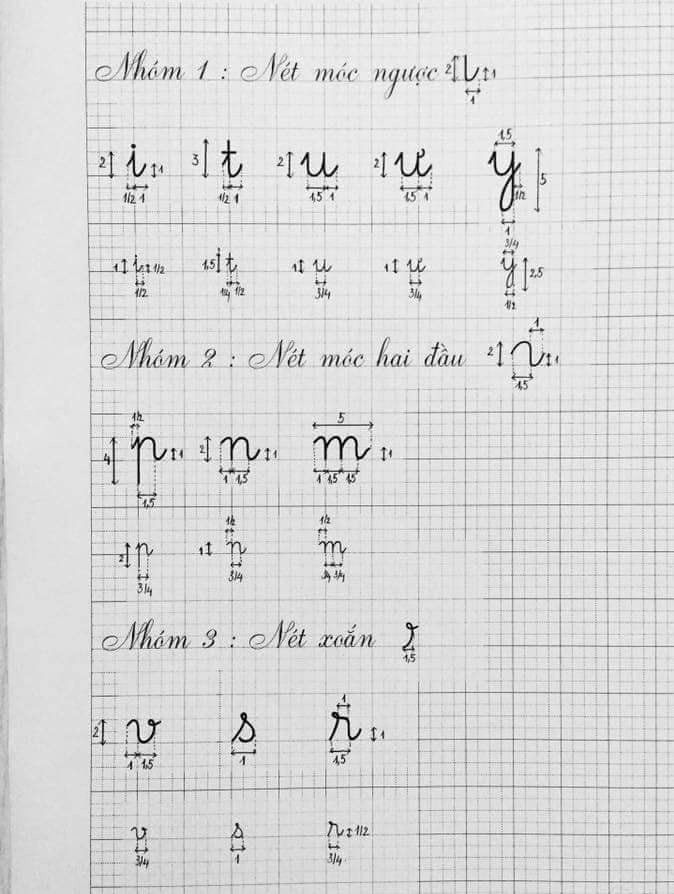 Nhóm 1 : Nét móc ngược 2 1
1
1,5
2 i 1 3 t 2 u 2 ư y 5
1/2 1 1/2 1 1,5 1 1,5 1 1/2
1
3/4
1 i 1/2 1,5 t 1 u 1 ư y 2,5
1/2 1/4 1/2 3/4 3/4 1/2
1
Nhóm 2 : Nét móc hai đầu 2 1
1,5
1/2 5
4 p 1 2 n 1 m 1
1,5 1 1,5 1 1,5 1,5
1/2 1/2
2 p 1 n m
3/4 3/4 3/4 3/4
Nhóm 3 : Nét xoắn
1,5
1
2 v s r 1
1 1,5 1 1,5
v s r 1/2
3/4 1 3/4